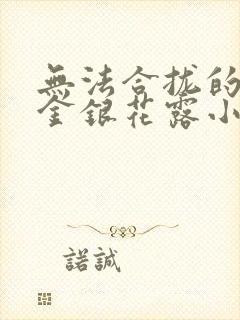 無法合拢的
金銀花露小
諾誠